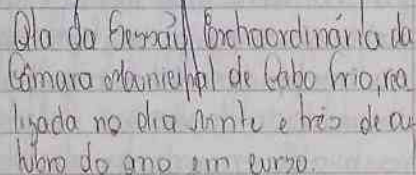 Ata da Sessão Extraordinária da
Câmara Municipal de Cabo Frio, rea
lizada no dia vinte e três de ou
tubro do ano em curso.